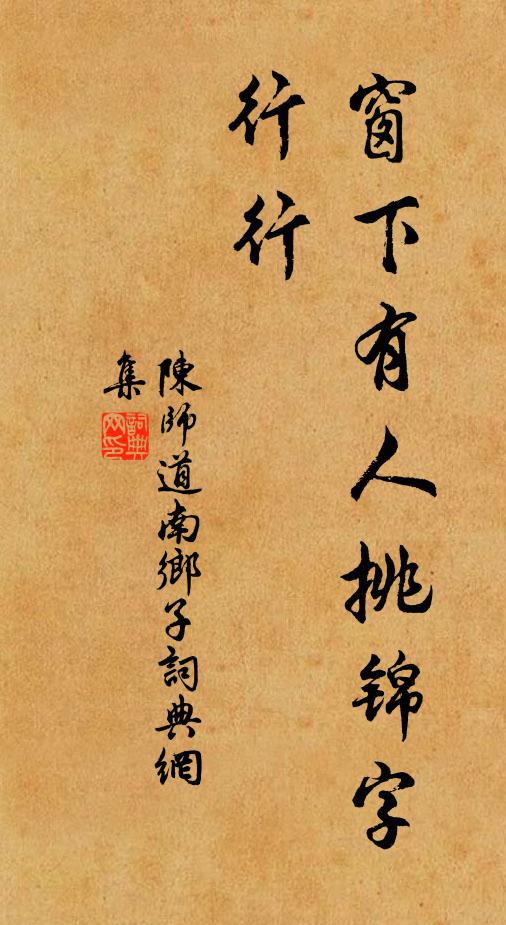 窗下有人挑锦字
行行
陳師道南鄉子詞典網
集
詞典
网印